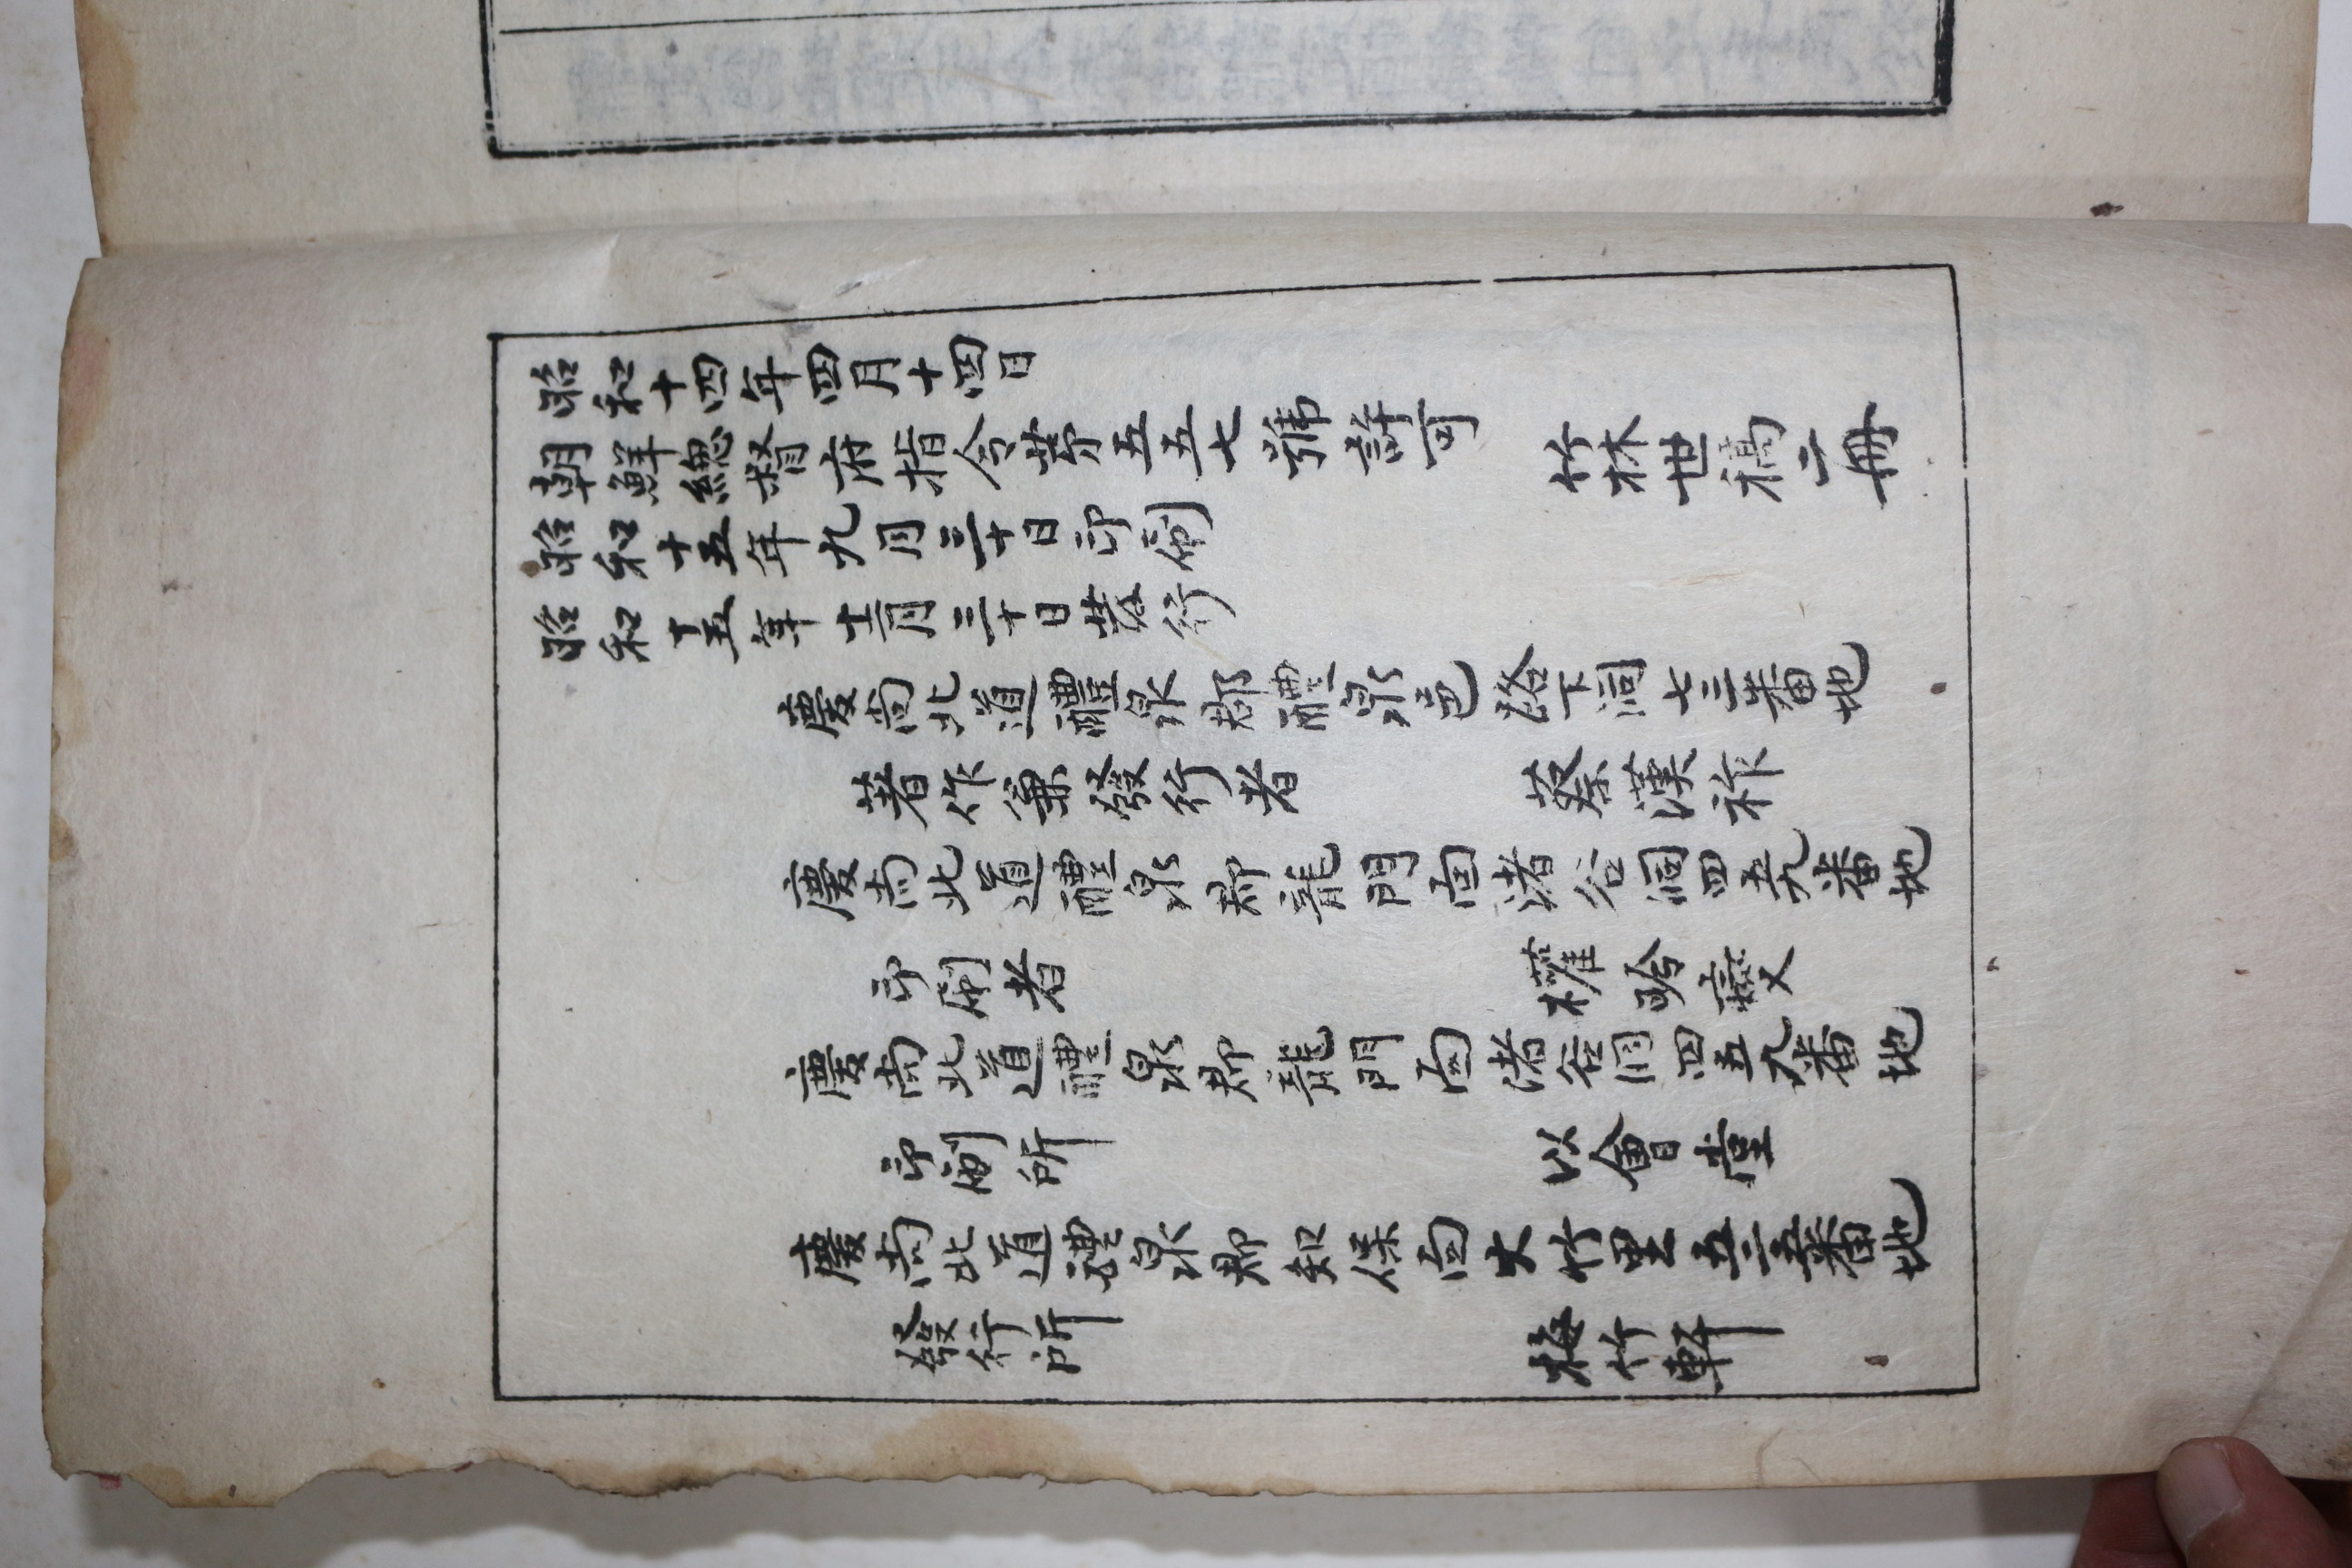 昭和十四年四月十四日
朝鮮緫督府指令第五五七號許可 竹林世稿二冊
昭和十五年九月三十日印刷
昭和十五年十二月三十日發行
慶尙北道醴泉郡醴泉邑路下洞七三番地
著作兼發行者 蔡漢祚
慶尙北道醴泉郡龍門面渚谷洞四五九番地
印刷者 權燮
慶尙北道醴泉郡龍門面渚谷洞四五九番地
印刷所 以會堂
慶尙北道醴泉郡知保面大竹里五二五番地
發行所 梅竹軒